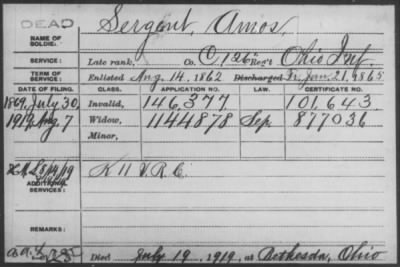 DEAD
Sergent, Amos,
NAME OF SOLDIER:
SERVICE: Late rank, Co. C, 126" Reg't Ohio Inf.
TERM OF SERVICE: Enlisted Aug. 14, 1862 Discharged Tr. Jan. 21, 1865
DATE OF FILING. CLASS. APPLICATION NO. LAW. CERTIFICATE NO.
1869, July 30, Invalid, 146,377 101,643
1919, Aug. 7 Widow, 1144878 Sep. 877036
Minor,
8/19/19 K 11 V.R.C.
ADDITIONAL SERVICES:
REMARKS:
Died July 19, 1919, at Bethesda, Ohio